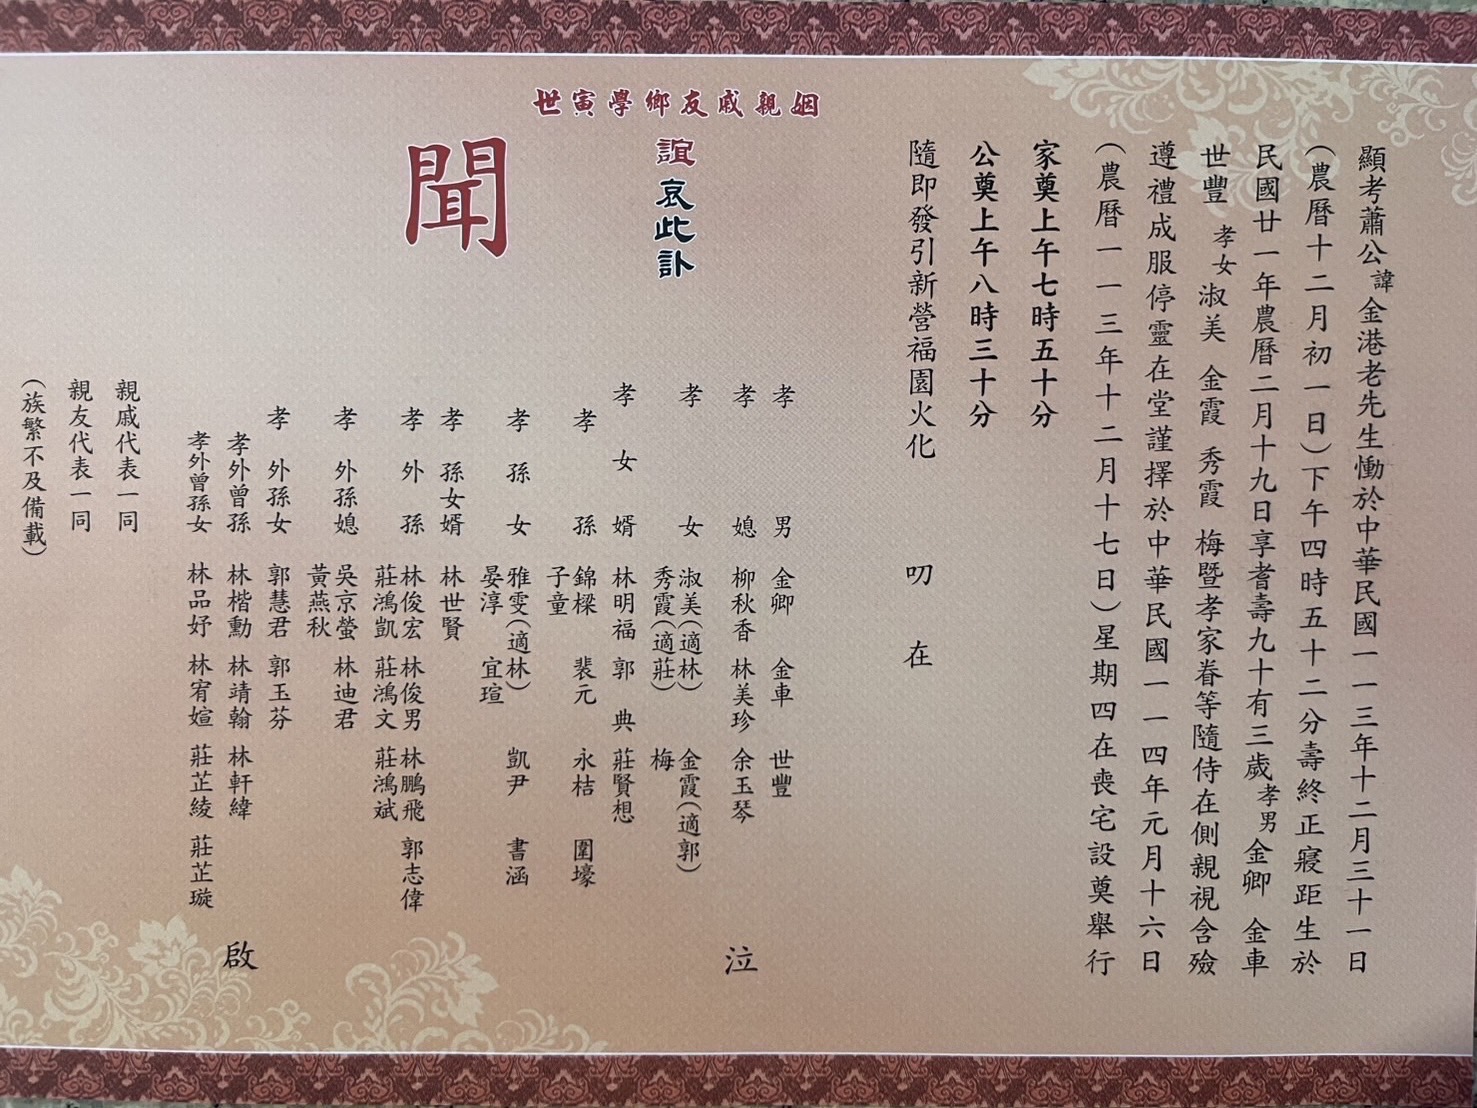 顯考蕭公諱金港老先生慟於中華民國一一三年十二月三十一日
（農曆十二月初一日）下午四時五十二分壽終正寢距生於
民國廿一年農曆二月十九日享耆壽九十有三歲孝男金卿 金車
世豐 孝女淑美 金霞 秀霞 梅暨孝家眷等隨侍在側親視含殮
遵禮成服停靈在堂謹擇於中華民國一一四年元月十六日
（農曆一一三年十二月十七日）星期四在喪宅設奠舉行
家奠上午七時五十分
公奠上午八時三十分
隨即發引新營福園火化 叨 在
姻親戚友鄉學寅世
誼哀此訃
聞
孝男 金卿 金車 世豐
孝媳 柳秋香 林美珍 余玉琴
孝女 淑美（適林） 金霞（適郭）
秀霞（適莊） 梅
孝女婿 林明福 郭典 莊賢想
孝孫 錦樑 裴元 永桔 圍壕
子童
孝孫女 雅雯（適林） 凱尹 書涵
晏淳 宜瑄
孝孫女婿 林世賢
孝外孫 林俊宏 林俊男 林鵬飛 郭志偉
莊鴻凱 莊鴻文 莊鴻斌
孝外孫媳 吳京螢 林迪君
黃燕秋
孝外孫女 郭慧君 郭玉芬
孝外曾孫 林楷勳 林靖翰 林軒緯
孝外曾孫女 林品妤 林宥媗 莊芷綾 莊芷璇
泣
啟
親戚代表一同
親友代表一同
（族繁不及備載）